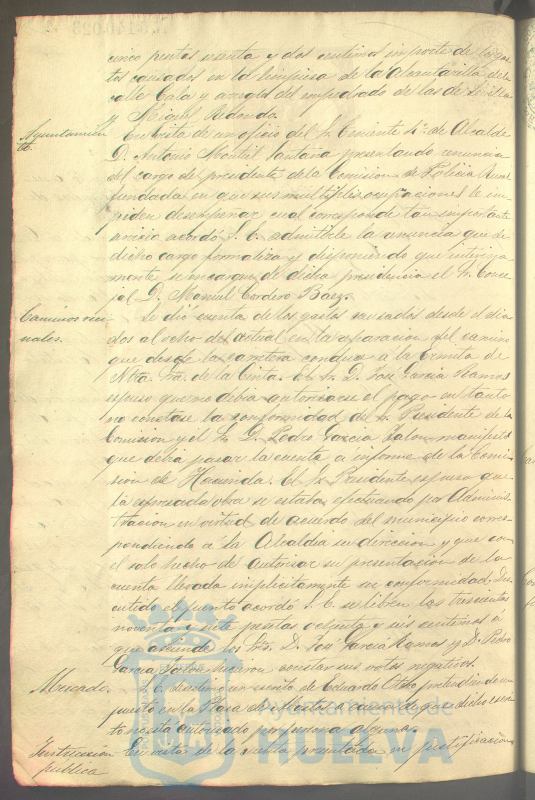 cinco pesetas ochenta y dos centimos importe de los gas
tos causados en la limpieza de la alcantarilla de la
calle Cala y arreglo del empedrado de las de Sevilla
y Miguel Redondo.
Ayuntamien
to.
En vista de un oficio del Sr. Teniente 4º de Alcalde
D. Antonio Montiel Santana presentando renuncia
del cargo de presidente de la Comision de Policia Rural
fundada en que sus multiples ocupaciones le im
piden desempeñar cual corresponde tan importante
servicio acordó S. E. admitirle la renuncia que de
dicho cargo formaliza y disponiendo que interina
mente se encargue de dicha presidencia el Sr. Conce
jal D. Manuel Cordero Baez.
Caminos veci
nales.
Se dio cuenta de los gastos causados desde el dia
dos al ocho del actual en la reparacion del camino
que desde la carretera conduce a la Ermita de
Ntra. Sra. de la Cinta. El Sr. D. José Garcia Ramos
expuso que no debia autorizarse el pago en tanto
no constase la conformidad del Sr. Presidente de la
Comision y el Sr. D. Pedro Garcia Jalon manifestó
que debia pasar la cuenta a informe de la Comi
sion de Hacienda. El Sr. Presidente expuso que
la expresada obra se estaba efectuando por Adminis
tracion en virtud de acuerdo del municipio corres
pondiendo a la Alcaldia su direccion y que con
el solo hecho de autorizar su presentacion de la
cuenta llevaba implicitamente su conformidad. Dis
cutido el punto acordó S. E. se libren las trescientas
noventa y siete pesetas ochenta y seis centimos a
que asciende los Sres. D. José Garcia Ramos y D. Pedro
Garcia Jalon hicieron constar sus votos negativos.
Mercado.
S. E. desestimó un escrito de Eduardo Otero pretendiendo un
puesto en la Plaza de Abastos a causa de que dicho escri
to no está autorizado por persona alguna.
Instruccion
publica
En vista de la cuenta presentada en justificacion
Ayuntamiento de
HUELVA